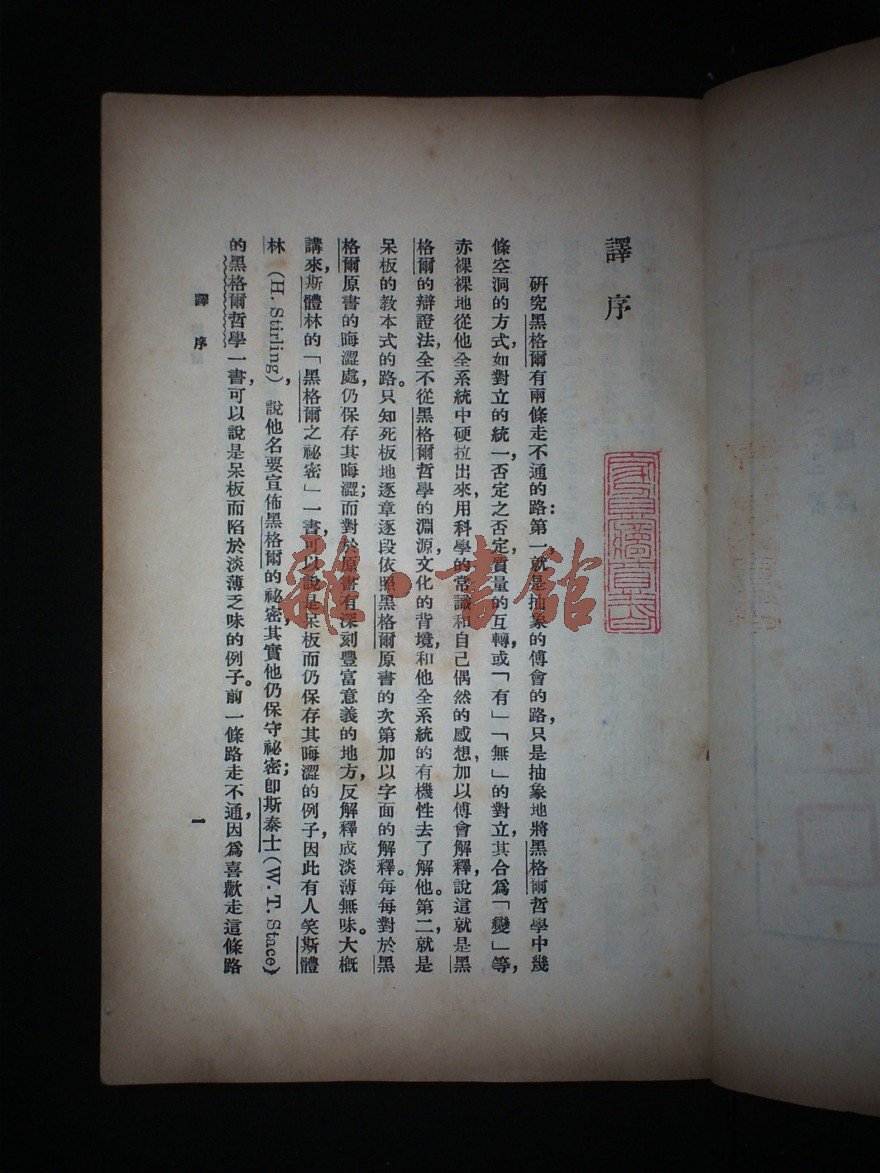 譯序
研究黑格爾有兩條走不通的路：第一就是抽象的傅會的路，只是抽象地將黑格爾哲學中幾
條空洞的方式如對立的統一，否定之否定，質量的互轉，或「有」「無」的對立，其合為「變」等，
赤裸裸地從他全系統中硬拉出來，用科學的常識和自己偶然的感想，加以傅會解釋，說這就是黑
格爾的辯證法，全不從黑格爾哲學的淵源，文化的背境，和他全系統的有機性去了解他。第二，就是
呆板的教本式的路。只知死板地逐章逐段依照黑格爾原書的次第加以字面的解釋。每每對於黑
格爾原書的晦澀處，仍保存其晦澀；而對於原書有深刻豐富意義的地方，反解釋成淡薄無味。大概
講來，斯體林的「黑格爾之祕密」一書，可以說是呆板而仍保存其晦澀的例子，因此有人笑斯體
林（H. Stirling），說他名要宣佈黑格爾的祕密，其實他仍保守祕密；卽斯泰士（W. T. Stace）
的黑格爾哲學一書，可以說是呆板而陷於淡薄乏味的例子。前一條路走不通，因爲喜歡走這條路
譯序
一
雜·書館